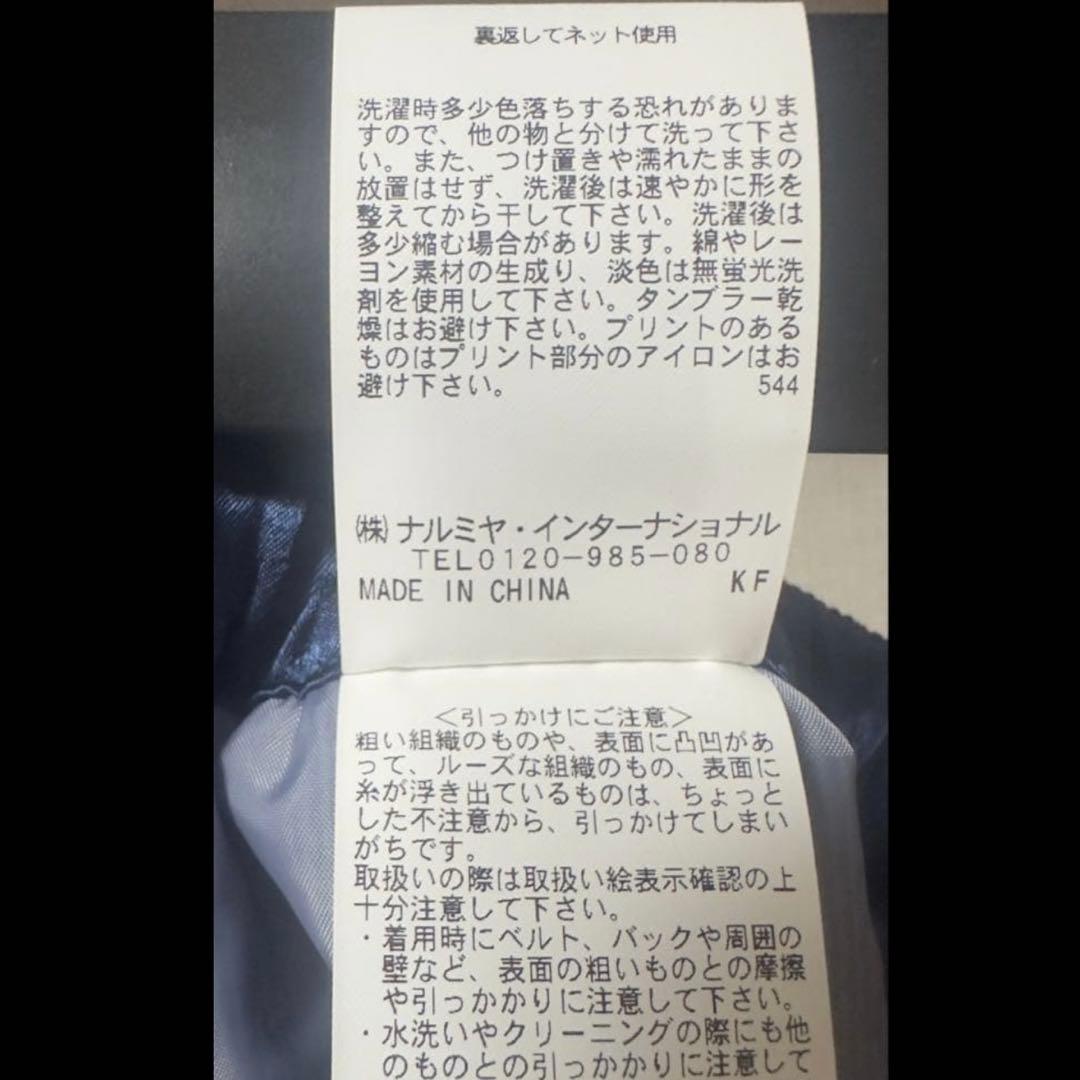 裏返してネット使用
洗濯時多少色落ちする恐れがありま
すので、他の物と分けて洗って下さ
い。また、つけ置きや濡れたままの
放置はせず、洗濯後は速やかに形を
整えてから干して下さい。洗濯後は
多少縮む場合があります。綿やレー
ヨン素材の生成り、淡色は無蛍光洗
剤を使用して下さい。タンブラー乾
燥はお避け下さい。プリントのある
ものはプリント部分のアイロンはお
避け下さい。 544
㈱ナルミヤ・インターナショナル
TEL0120-985-080
MADE IN CHINA KF
<引っかけにご注意>
粗い組織のものや、表面に凸凹があ
って、ルーズな組織のもの、表面に
糸が浮き出ているものは、ちょっと
した不注意から、引っかけてしまい
がちです。
取扱いの際は取扱い絵表示確認の上
十分注意して下さい。
・着用時にベルト、バックや周囲の
壁など、表面の粗いものとの摩擦
や引っかかりに注意して下さい。
・水洗いやクリーニングの際にも他
のものとの引っかかりに注意して